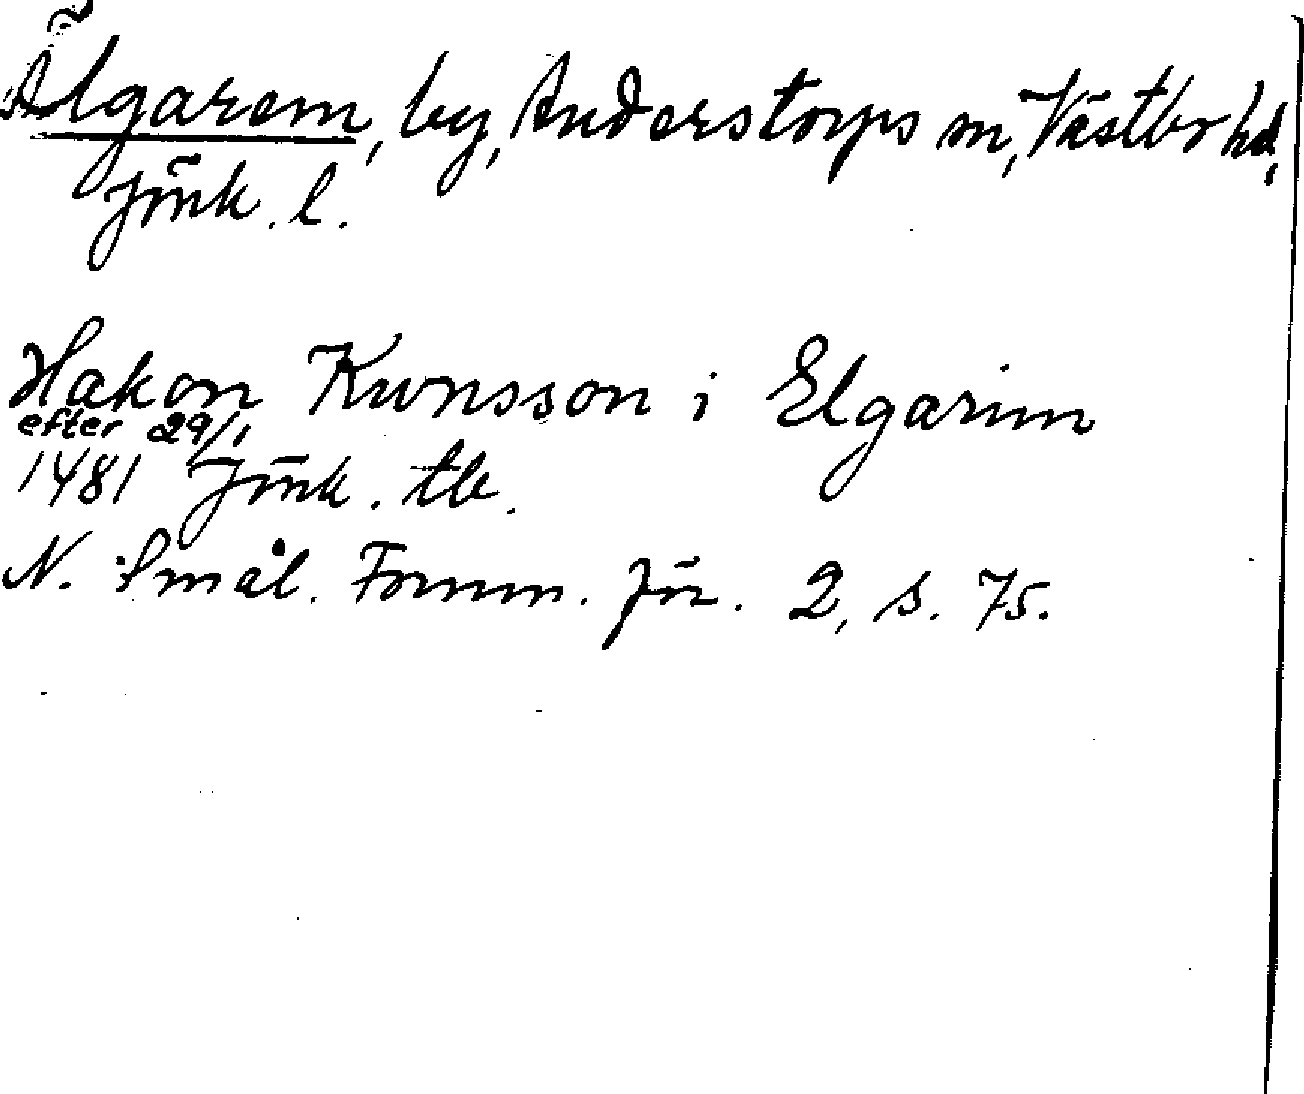 Älgarem, by, Anderstorps sn, Västbo hd,
Jönk. l.
Hakon Kunsson i Elgarim
efter 29/1
1481 Jönk. tb.
N. Smål. Fornm. för. 2, s. 75.